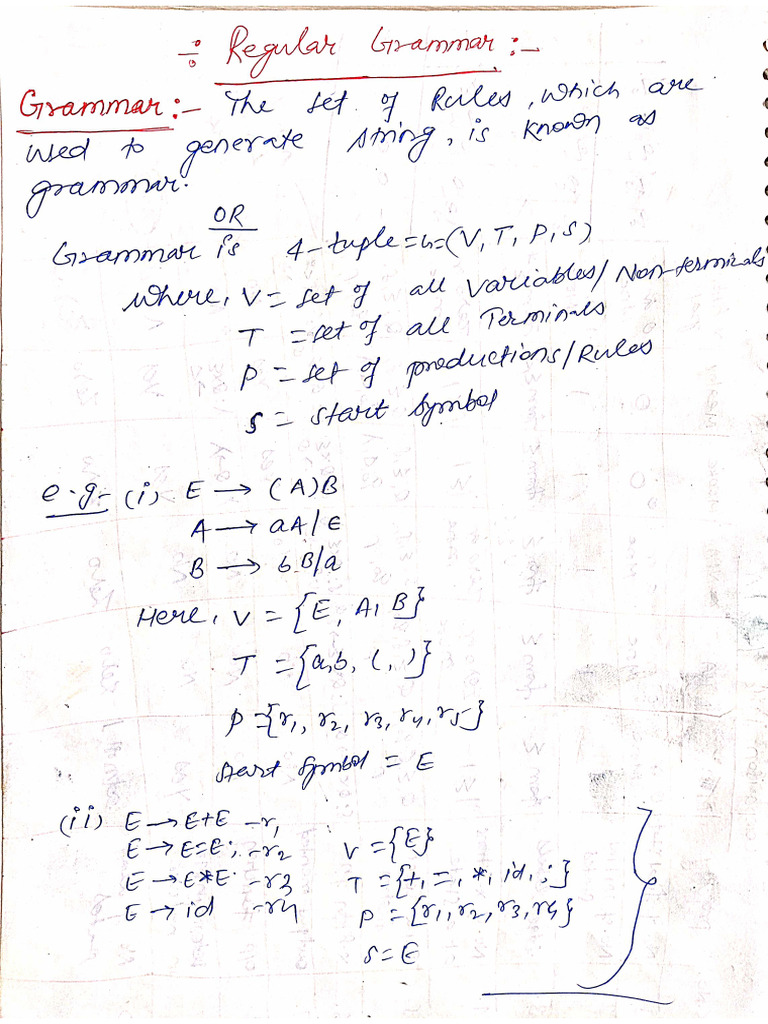 ÷ Regular Grammar :-
Grammar :- The set of Rules, which are
used to generate string, is known as
grammar.
OR
Grammar is 4-tuple = G = (V, T, P, S)
where, V = set of all variables/Non-terminals
T = set of all Terminals
P = set of productions/Rules
S = start symbol
e.g- (i) E → (A)B
A → aA/ε
B → bB/a
Here, V = {E, A, B}
T = {a, b, (, )}
P = {r1, r2, r3, r4, r5}
start symbol = E
(ii) E → E+E -r1
E → E=E; -r2
E → E*E -r3
E → id -r4
V = {E}
T = {+, =, *, id, ;}
P = {r1, r2, r3, r4}
S = E